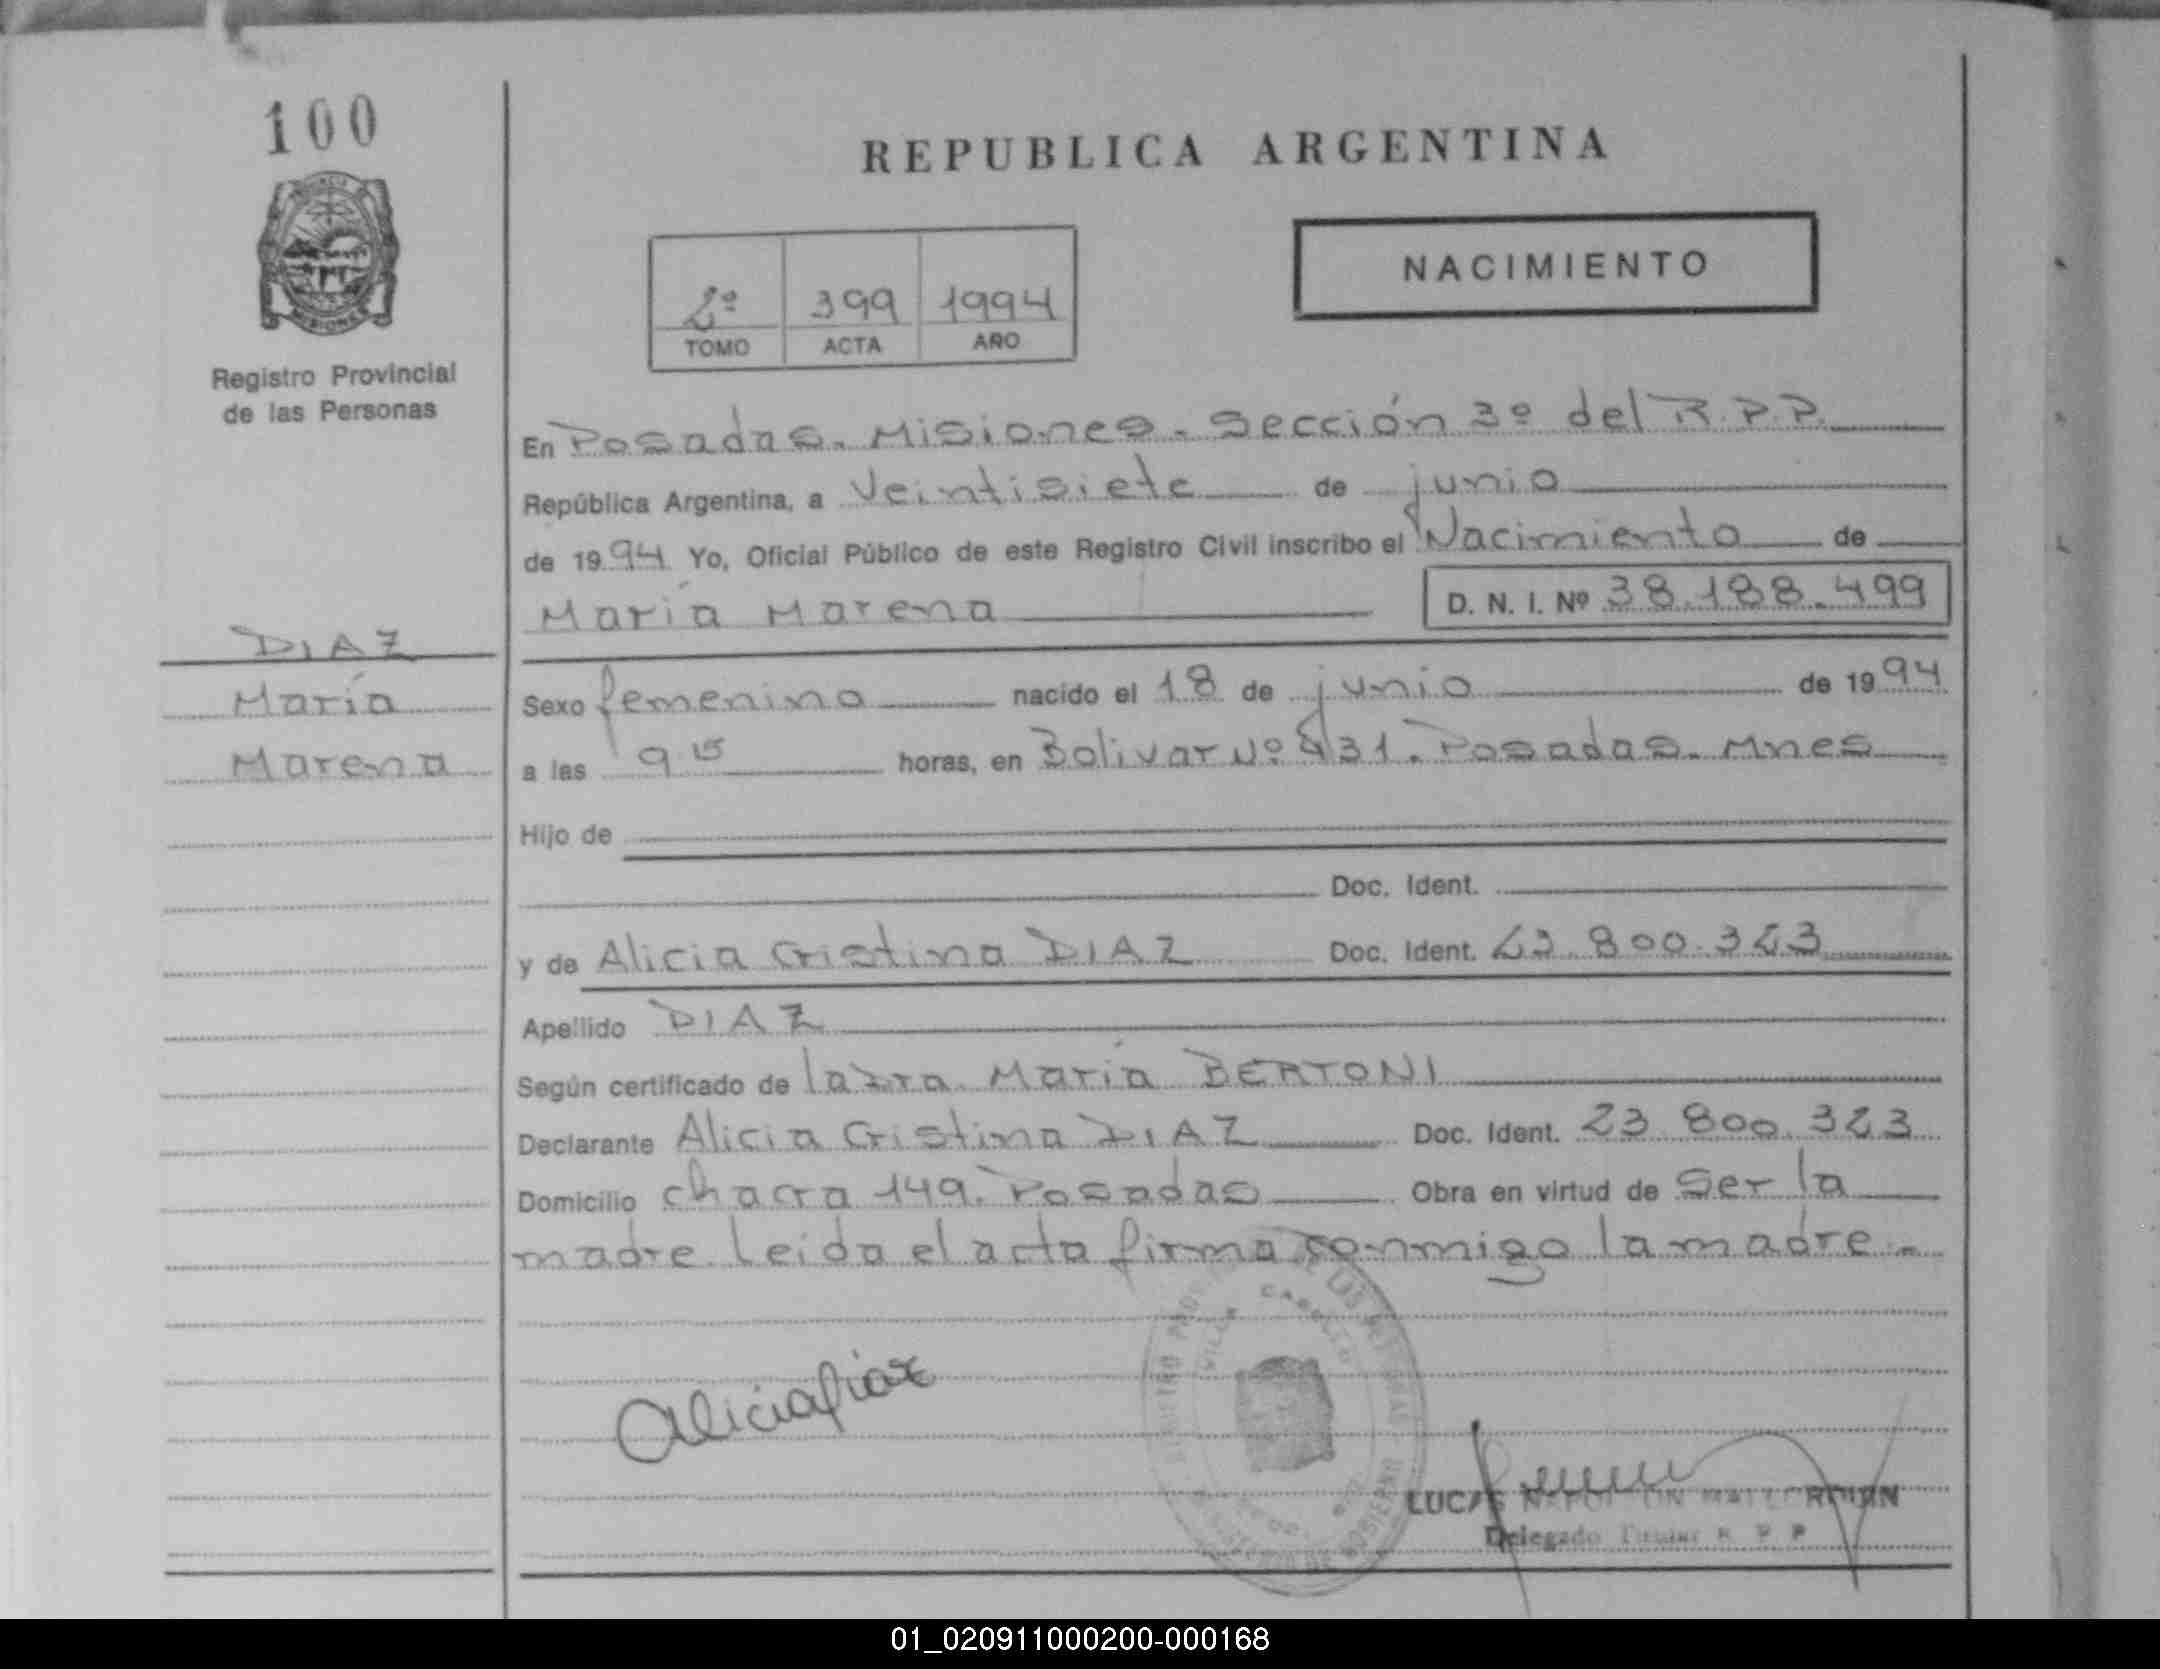 100
REPUBLICA ARGENTINA
NACIMIENTO
2º 399 1994
TOMO ACTA AÑO
Registro Provincial
de las Personas
MISIONES
En Posadas. Misiones. Sección 3º del R.P.P.
República Argentina, a Veintisiete de junio
de 1994 Yo, Oficial Público de este Registro Civil inscribo el Nacimiento de
María Marena D. N. I. Nº 38.188.499
DIAZ
María
Marena
Sexo femenino nacido el 18 de junio de 1994
a las 9 15 horas, en Bolivar Nº 431. Posadas. Mnes
Hijo de
Doc. Ident.
y de Alicia Cristina DIAZ Doc. Ident. 23.800.323
Apellido DIAZ
Según certificado de la Dra. María BERTONI
Declarante Alicia Cristina DIAZ Doc. Ident. 23.800.323
Domicilio chacra 149. Posadas Obra en virtud de Ser la
madre. Leida el acta firma conmigo la madre.-
Alicia Diaz
LUCAS
Delegado Titular R. P. P.
01_020911000200-000168